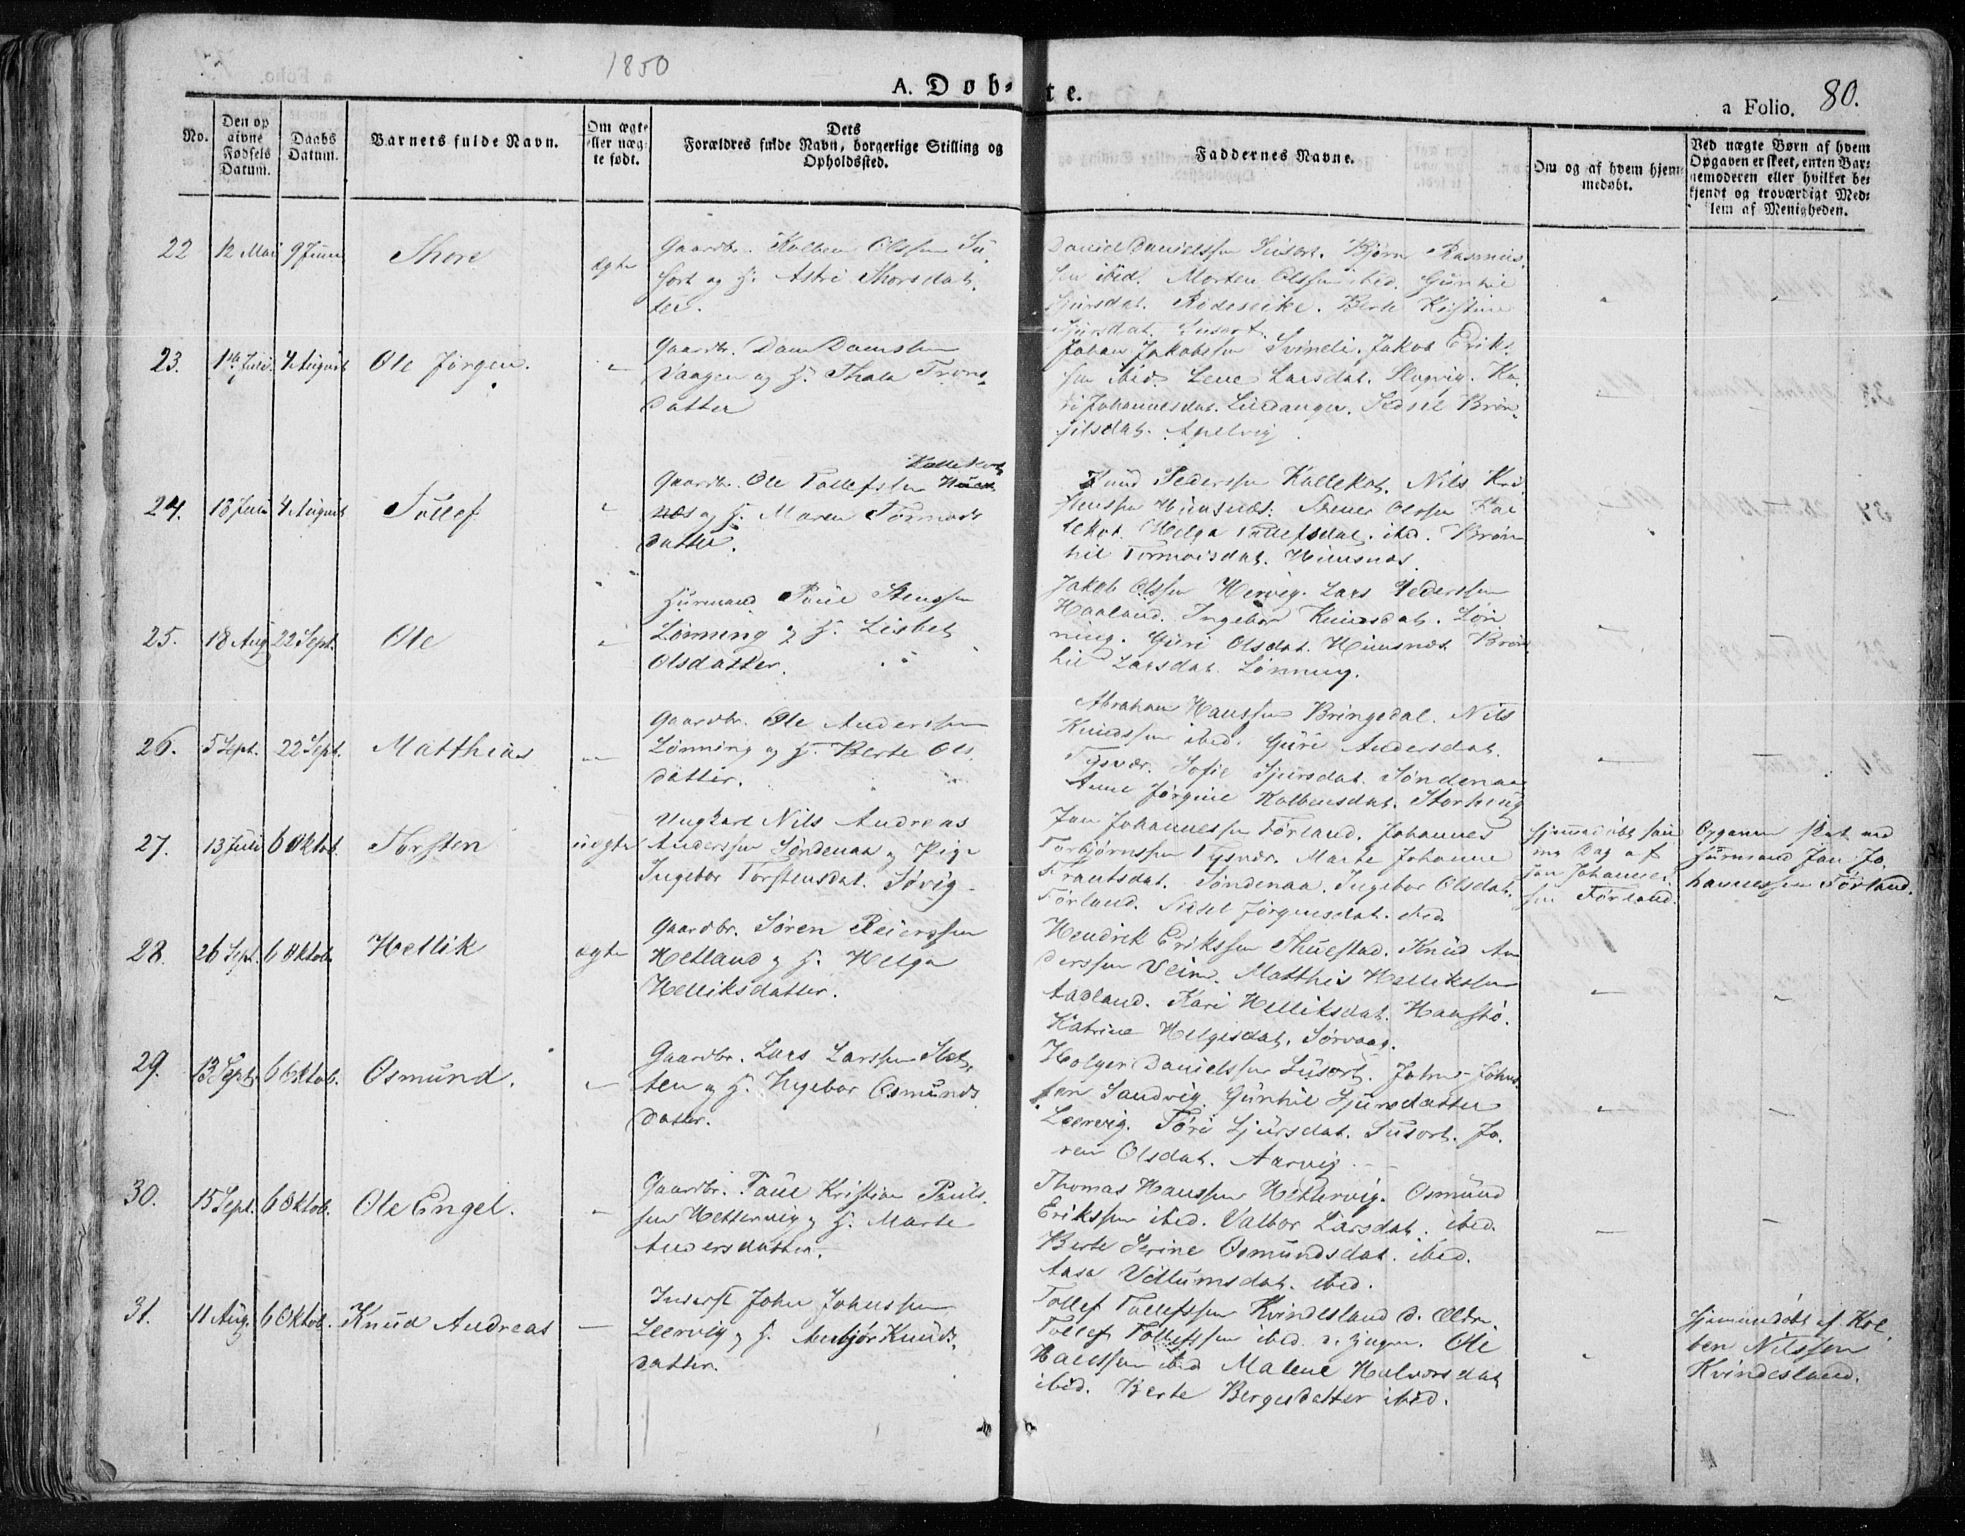 1850
A. Døb-
te.
a Folio. 80.
No.
Den op
givne
Fødsels
Datum.
Daabs
Datum.
Barnets fulde Navn.
Om ægte
eller uæg-
te født.
Dets
Forældres fulde Navn, borgerlige Stilling og
Opholdssted.
Faddernes Navne.
Om og af hvem hjem-
medøbt.
Ved uægte Børn af hvem
Opgaven er skeet, enten Bar-
nemoderen eller hvilket be-
kjendt og troværdigt Med-
lem af Menigheden.
22 12 Mai 9 Juni Thore ægte
Gaardbr. Kolben Olssen Su-
sort og H. Astri Thorsdat-
ter.
Daniel Danielssen Susort. Bjørn Rasmus-
sen ibid. Morten Olssen ibid. Gunhil
Sjursdat. Rødeseike. Berte Kristine
Sjursdat. Susort
23. 1ste Juli. 4 August Ole Jørgen. "
Gaardbr. Dane Danelssen
Vaagen og H. Thala Trons-
datter
Johan Jakobssen Svindi. Jakob Erik-
sen ibid. Lene Larsdat. Slogvig. Ka-
ri Johannesdat. Liedanger. Sidsel Brøn-
gilsdat. Apelvig
24. 18 Juli 4 August Tollef "
Gaardbr. Ole Tollefssen Kallekot
og H. Maren Tormods
datter.
Knud Pederssen Kallekot. Nils Kri-
stenssen Hunsnæs. Stener Olssen Kal-
lekot. Helga Tollefsdat. ibid. Brøn-
hil Tormodsdat. Hunsnæs.
25. 18 Aug 22 Sept. Ole "
Huusmand Paul Stenssen
Lønning og H. Lisbet
Olsdatter.
Jakob Olssen Hervig. Lars Pederssen
Haaland. Ingebor Knudsdat. Løn-
ning. Guri Olsdat. Hunsnæs Brøn-
hil Larsdat. Lønning.
26. 5 Sept. 22 Sept. Matthias "
Gaardbr. Ole Anderssen
Lønning og H. Berte Ols-
datter.
Abrahan Hanssen Bringedal. Nils
Knudssen ibid. Guri Andersdat.
Tysvær. Sofie Sjursdat. Søndenaa
Anne Jørgine Kolbensdat. Storhaug
27. 13 Juli 6 Oktob. Torsten uægte
Ungkarl Nils Andreas
Anderssen Søndenaa og Pige
Ingebor Torstensdat. Søvig.
Jan Johannessen Førland. Johannes
Torbjørnssen Tysvær. Marte Johanne
Frantsdat. Søndenaa. Ingebor Olsdat.
Førland. Sidsel Jørgensdat. ibid.
hjemmedøbt sam-
me Dag af
Jan Johannes-
sen Førland.
Opgaven skeet ved
Huusmand Jan Jo-
hannessen Førland.
28. 26 Sept. 6 Oktob. Hellik ægte
Gaardbr. Søren Reierssen
Hetland og H. Helga
Helliksdatter.
Hendrik Erikssen Thuestad. Knud An-
derssen Veim. Matthis Hellikssen
Aadland. Kari Helliksdat. Haustø.
Katrine Helgesdat. Sørvaag.
29. 13 Sept. 6 Oktob. Osmund. "
Gaardbr. Lars Larssen Slet-
ten og H. Ingebor Osmunds
datter.
Holger Danielssen Susort. John Johns-
sen Sandvig. Gunhil Sjursdatter
Leervig. Tøri Sjursdat. Susort. Jo-
ren Olsdat. Aarvig
30. 15 Sept. 6 Oktob. Ole Engel. "
Gaardbr. Paul Kristian Pauls-
sen Hettervig og H. Marte
Andersdatter.
Thomas Hanssen Hettervig. Osmund
Erikssen ibid. Valbor Larsdat. ibid.
Berte Serine Osmundsdat. ibid.
Aasa Villumsdat. ibid.
31. 11 Aug. 6 Oktob. Knud Andreas "
Inderst John Johnssen
Leervig og H. Anbjør Knuds-
datter.
Tollef Tollefssen Kvindesland d. Ældre.
Tollef Tollefssen ibid. d. Yngre. Ole
Hanssen ibid Malene Halvorsdat
ibid. Berte Bergesdatter ibid.
Hjemmedøbt af Kol-
ben Nilssen
Kvindesland.